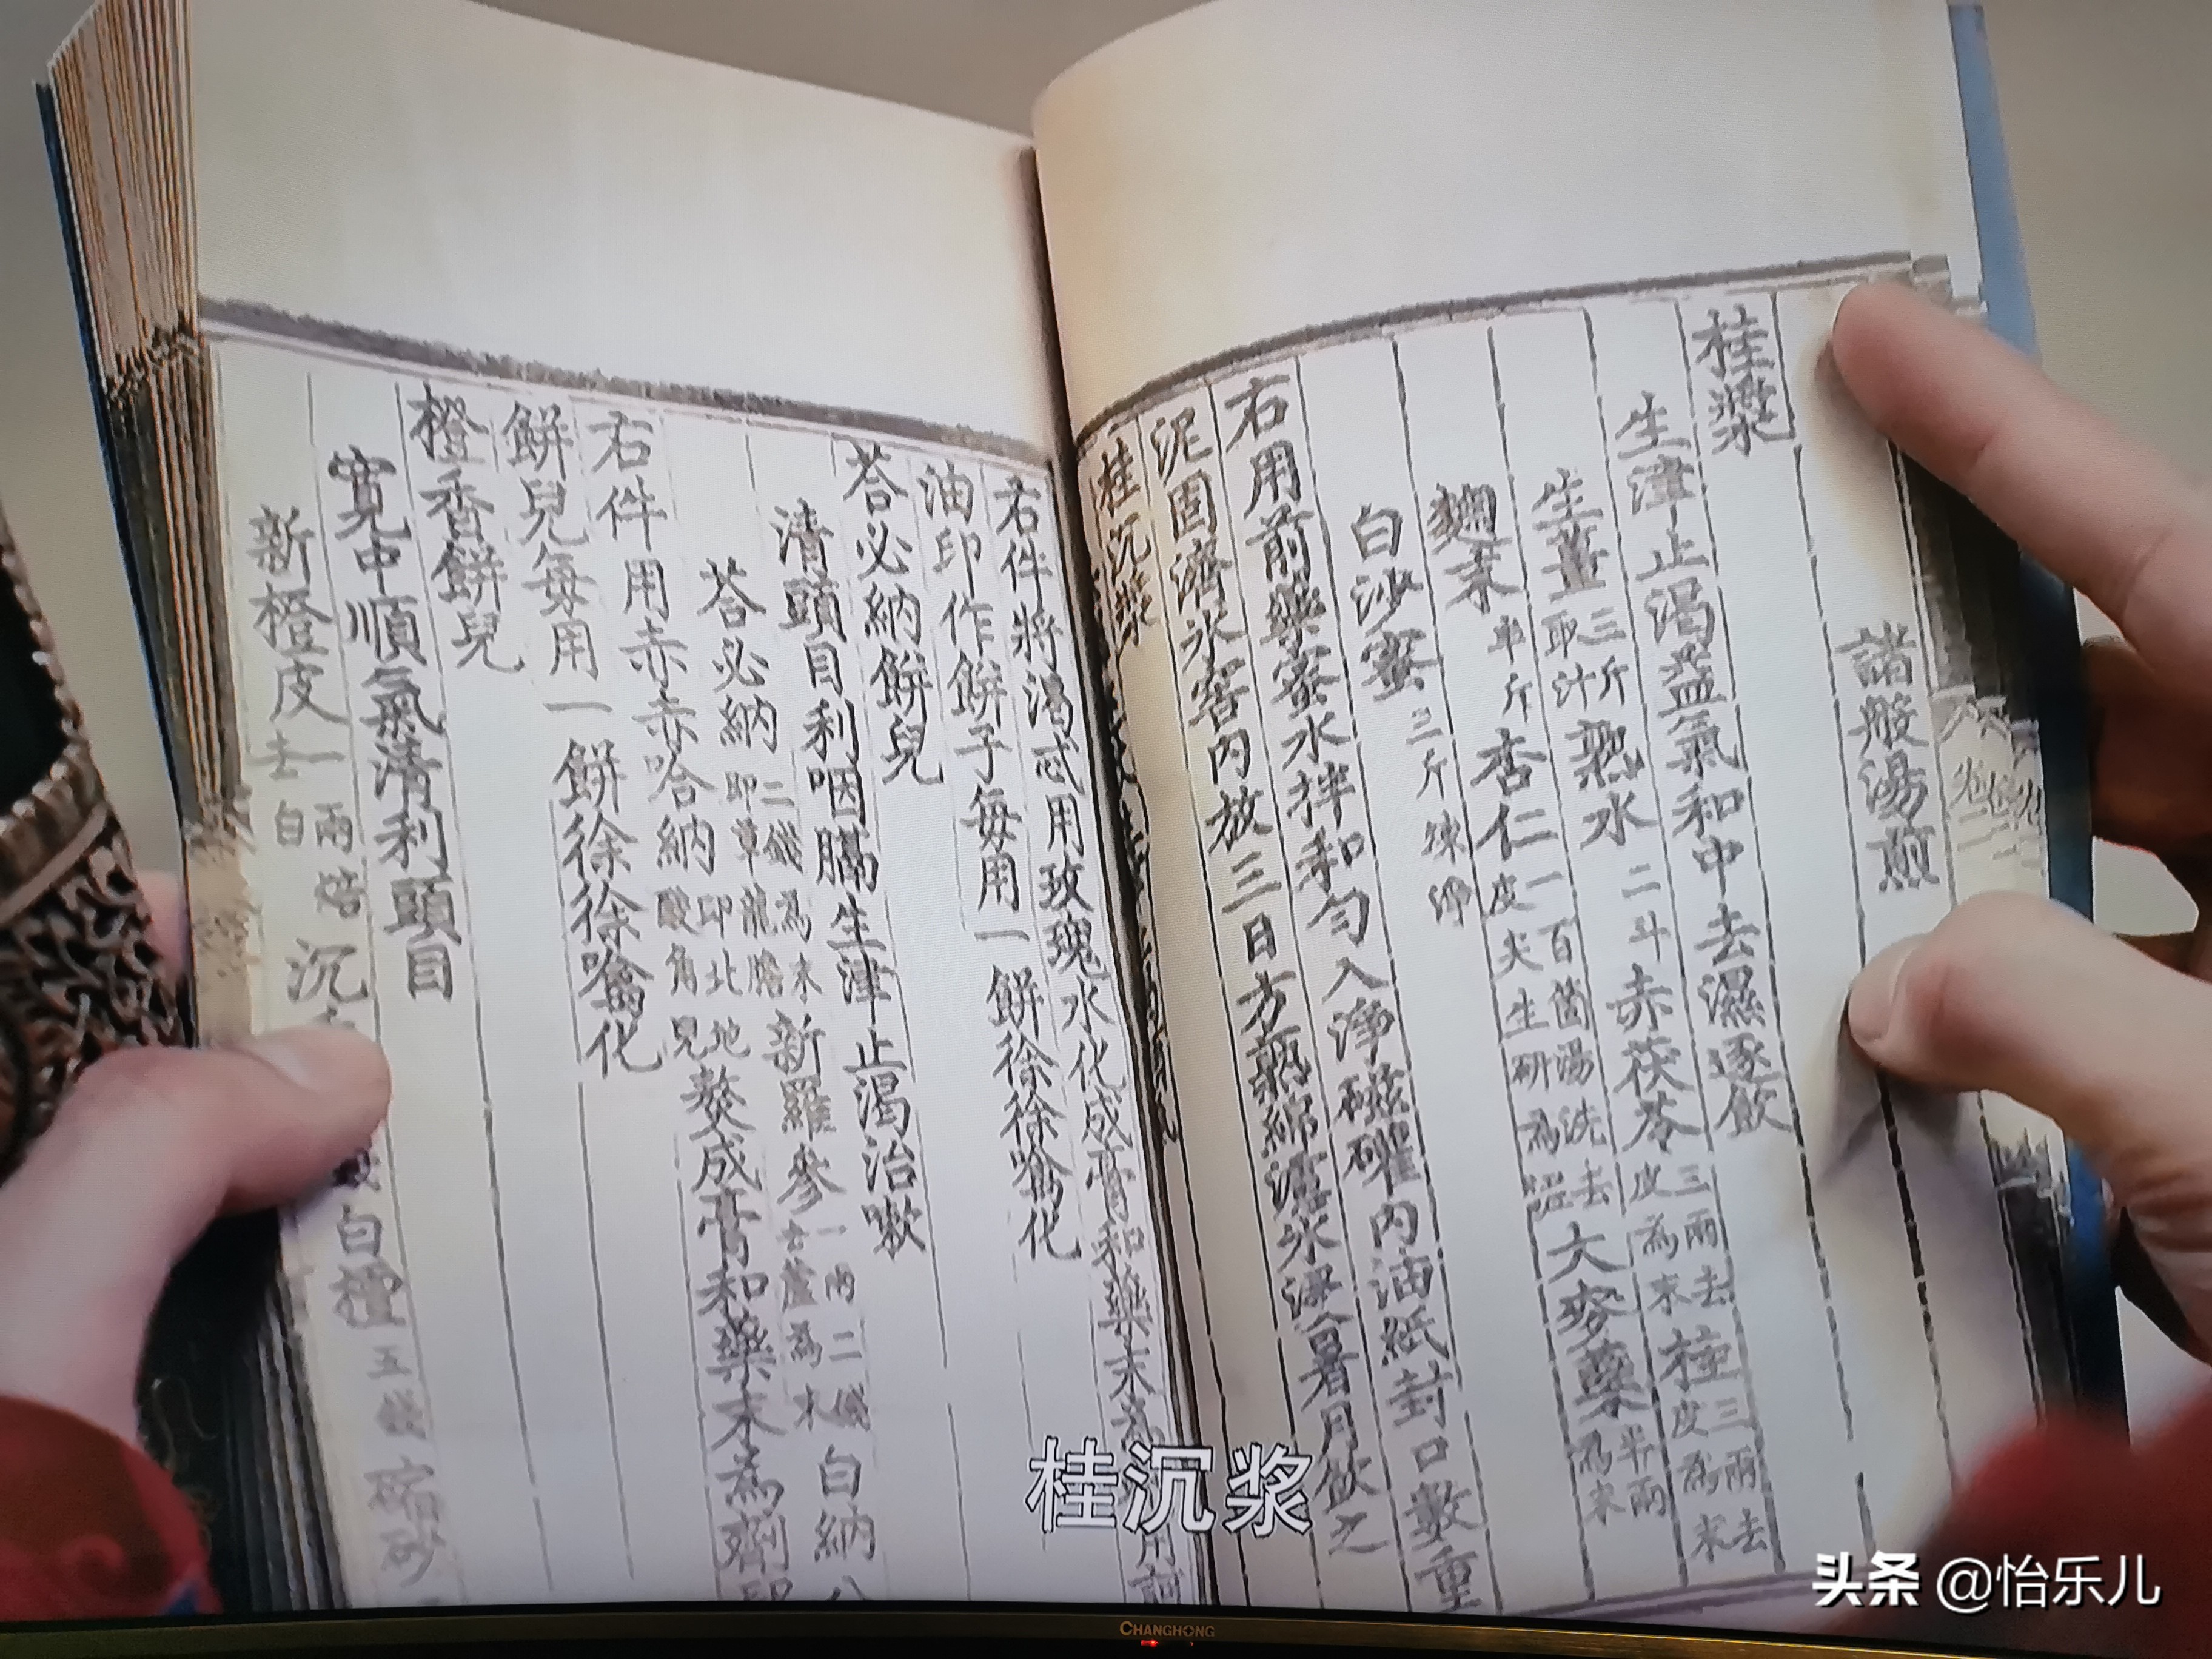 諸般湯煎
桂漿
生津止渴益氣和中去濕逐飲
生薑三斤取汁 熟水二斗 赤茯苓三兩去皮為末 桂三兩去皮為末
麴末半斤 杏仁一百箇湯洗去皮尖生研為 大麥糵半兩為末
白沙蜜三斤煉淨
右用前藥蜜水拌和勻入淨磁罐內油紙封口數重
泥固濟氷窖內放三日方熟綿濾氷浸暑月飲之
桂沉漿
右件將渴忒用玫瑰水化成膏和藥末
油印作餅子每用一餅徐徐噙化
荅必納餅兒
清頭目利咽膈生津止渴治嗽
荅必納二錢為末即草龍膽 新羅參一兩二錢去蘆為末 白納八
右件用赤赤哈納即北地酸角兒 熬成膏和藥末為劑
餅兒每用一餅徐徐噙化
橙香餅兒
寬中順氣清利頭目
新橙皮一兩焙去白 沉 白檀五錢 縮砂
桂沉浆
CHANGHONG
头条 @怡乐儿